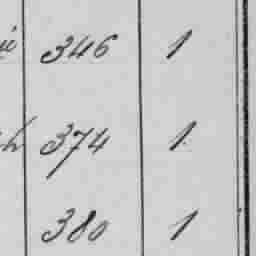 346 1
374 1.
380 1